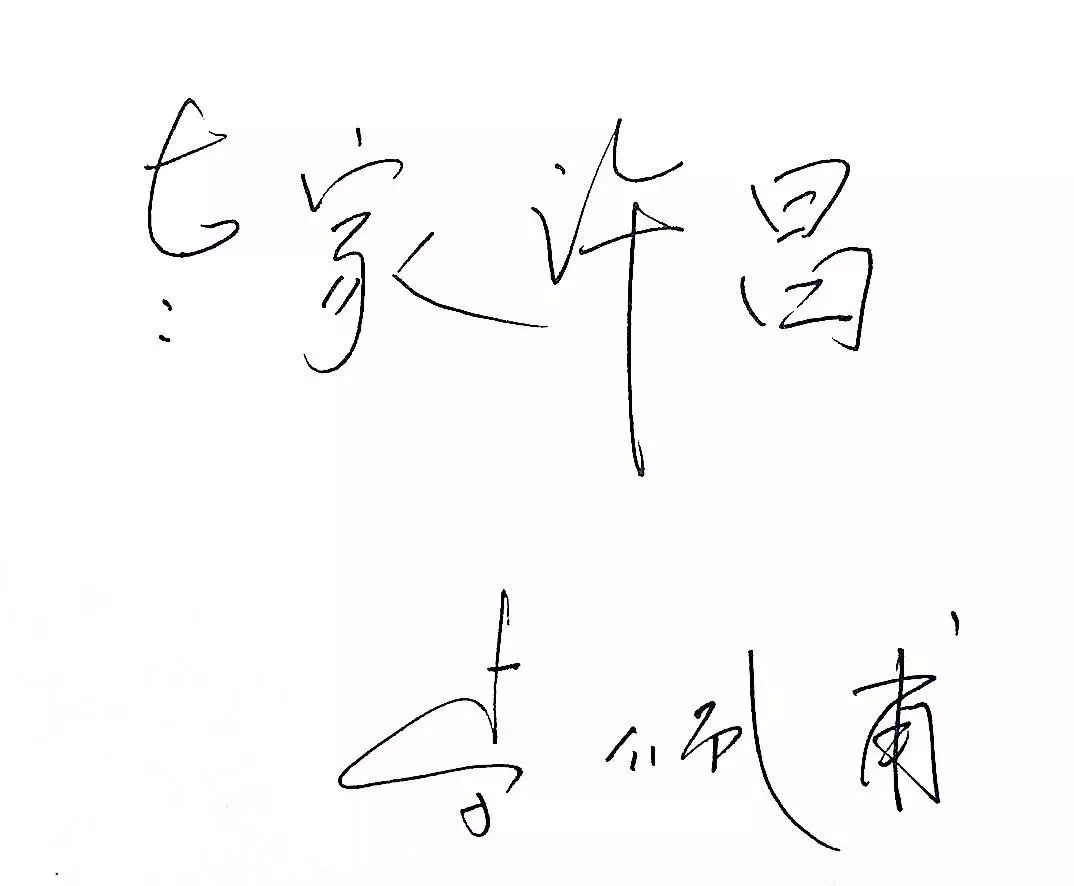 老家许昌
李佩甫